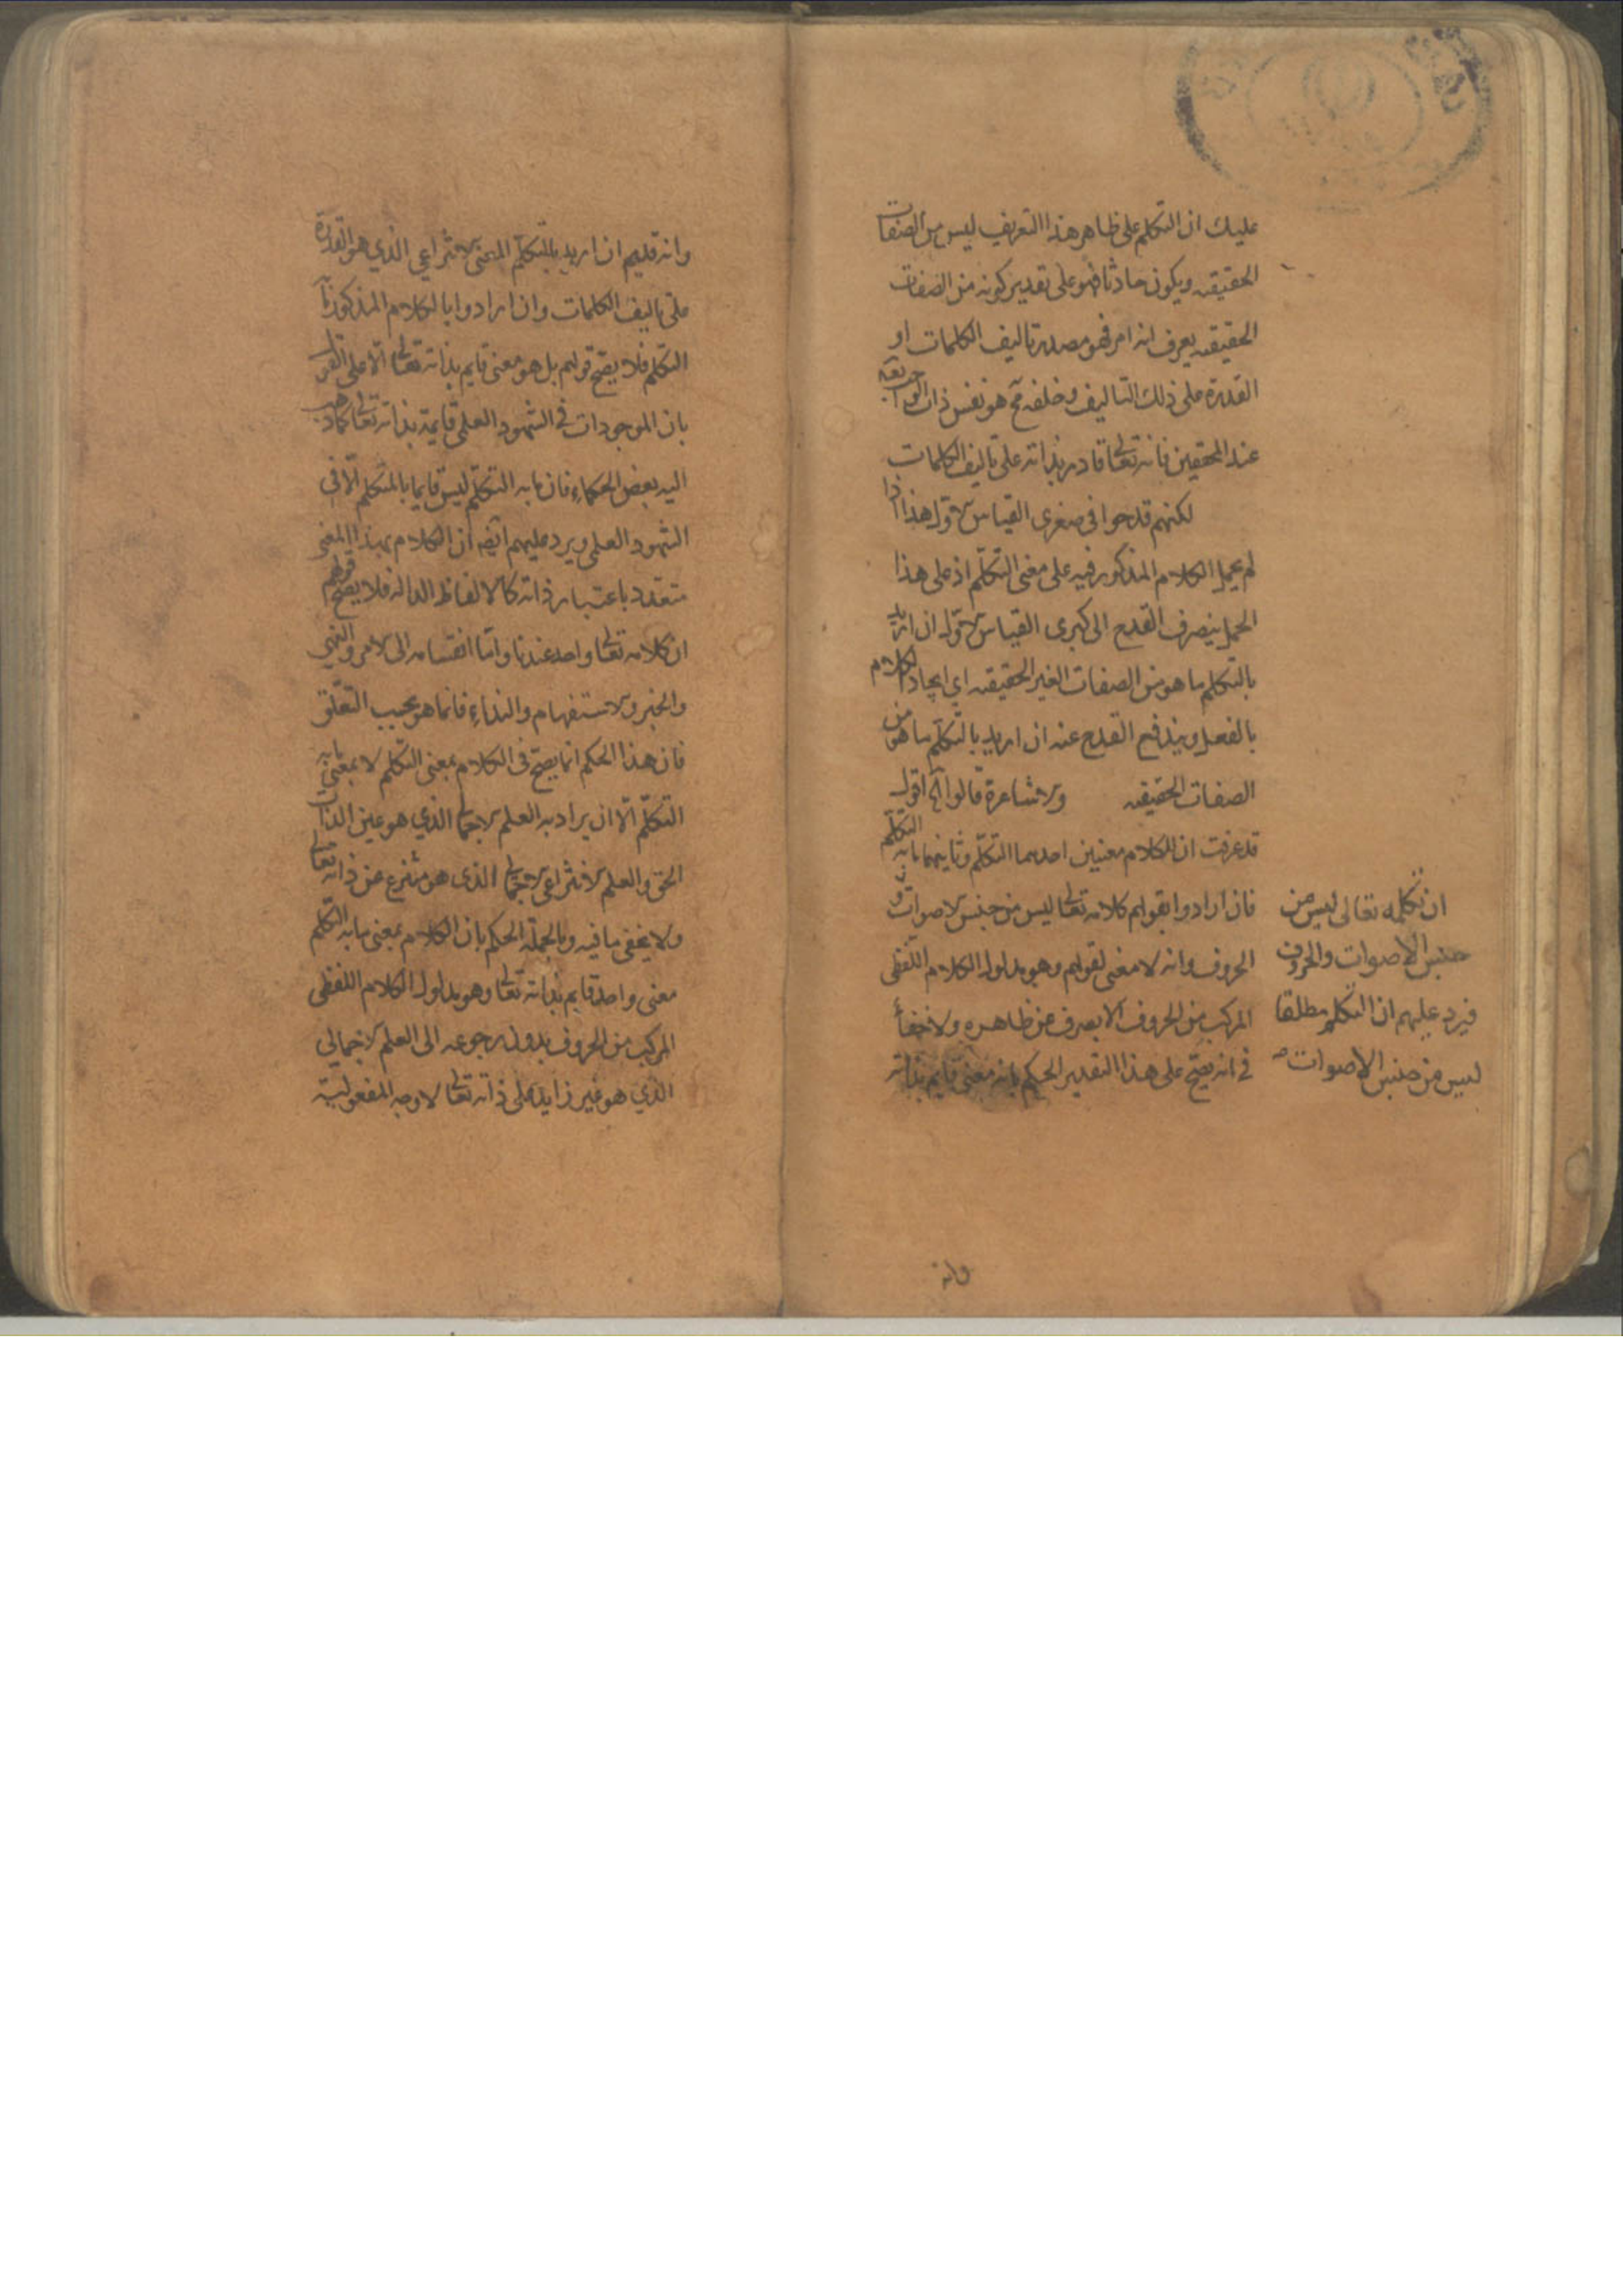 عليك ان التكلم على ظاهر هذا التعريف ليس من الصفات
الحقيقه ويكون حادثا فهو على تقدير كونه من الصفات
الحقيقه يعرف انه امر فهو مصدر تاليف الكلمات او
القدرة على ذلك التاليف وخلفه هو نفس ذات
عند المحققين فانه تعالى قادر بذاته على تاليف الكلمات
لكنهم قدحوا فى صغرى القياس الاول هذا اذا
لم يحمل الكلام المذكور فيه على معنى التكلم اذ على هذا
الحمل ينصرف القدح الى كبرى القياس الاول ان اريد
بالتكلم ما هو من الصفات الغير الحقيقه اى ايجاد الكلام
بالفعل ويندفع القدح عنه ان اريد بالتكلم ما هو من
الصفات الحقيقه والاشاعرة قالوا الخ اقول
قد عرفت ان للكلام معنيين احدهما التكلم وثانيهما ما به التكلم
فان ارادوا بقولهم كلامه تعالى ليس من جنس الاصوات و
الحروف وانه لا معنى لقولهم وهو مدلول الكلام اللفظى
المركب من الحروف الا بصرف عن ظاهره ولا خفأ
فى انه يصح على هذا التقدير الحكم بانه معنى قايم بذاته
ان تكلمه تعالى ليس من
جنس الاصوات والحروف
فيرد عليهم ان التكلم مطلقا
ليس من جنس الاصوات
وانه
وانه قديم ان اريد بالتكلم المعنى الانتزاعي الذي هو القدرة
على تاليف الكلمات وان ارادوا بالكلام المذكور ما به
التكلم فلا يصح قولهم بل هو معنى قايم بذاته تعالى الا على القول
بان الموجودات فى الشهود العلمى قايمة بذاته تعالى كما ذهب
اليه بعض الحكماء فان ما به التكلم ليس قايما بالمتكلم الا فى
الشهود العلمى ويرد عليهم ايضا ان الكلام بهذا المعنى
متعدد باعتبار ذاته كالالفاظ الداله فلا يصح قولهم
ان كلامه تعالى واحد عندنا واما انقسامه الى الامر والنهي
والخبر والاستفهام والنداء فانما هو بحسب التعلق
فان هذا الحكم انما يصح فى الكلام بمعنى التكلم لا بمعنى ما به
التكلم الا ان يراد به العلم الاجمالى الذي هو عين الذات
الحق والعلم الانتزاعى الاجمالى الذى هو منتزع عن ذاته تعالى
ولا يخفى ما فيه وبالجملة الحكم بان الكلام بمعنى ما به التكلم
معنى واحد قايم بذاته تعالى وهو مدلول الكلام اللفظى
المركب من الحروف بدون رجوعه الى العلم الاجمالي
الذي هو غير زايد على ذاته تعالى لا وجه لمفعوليته